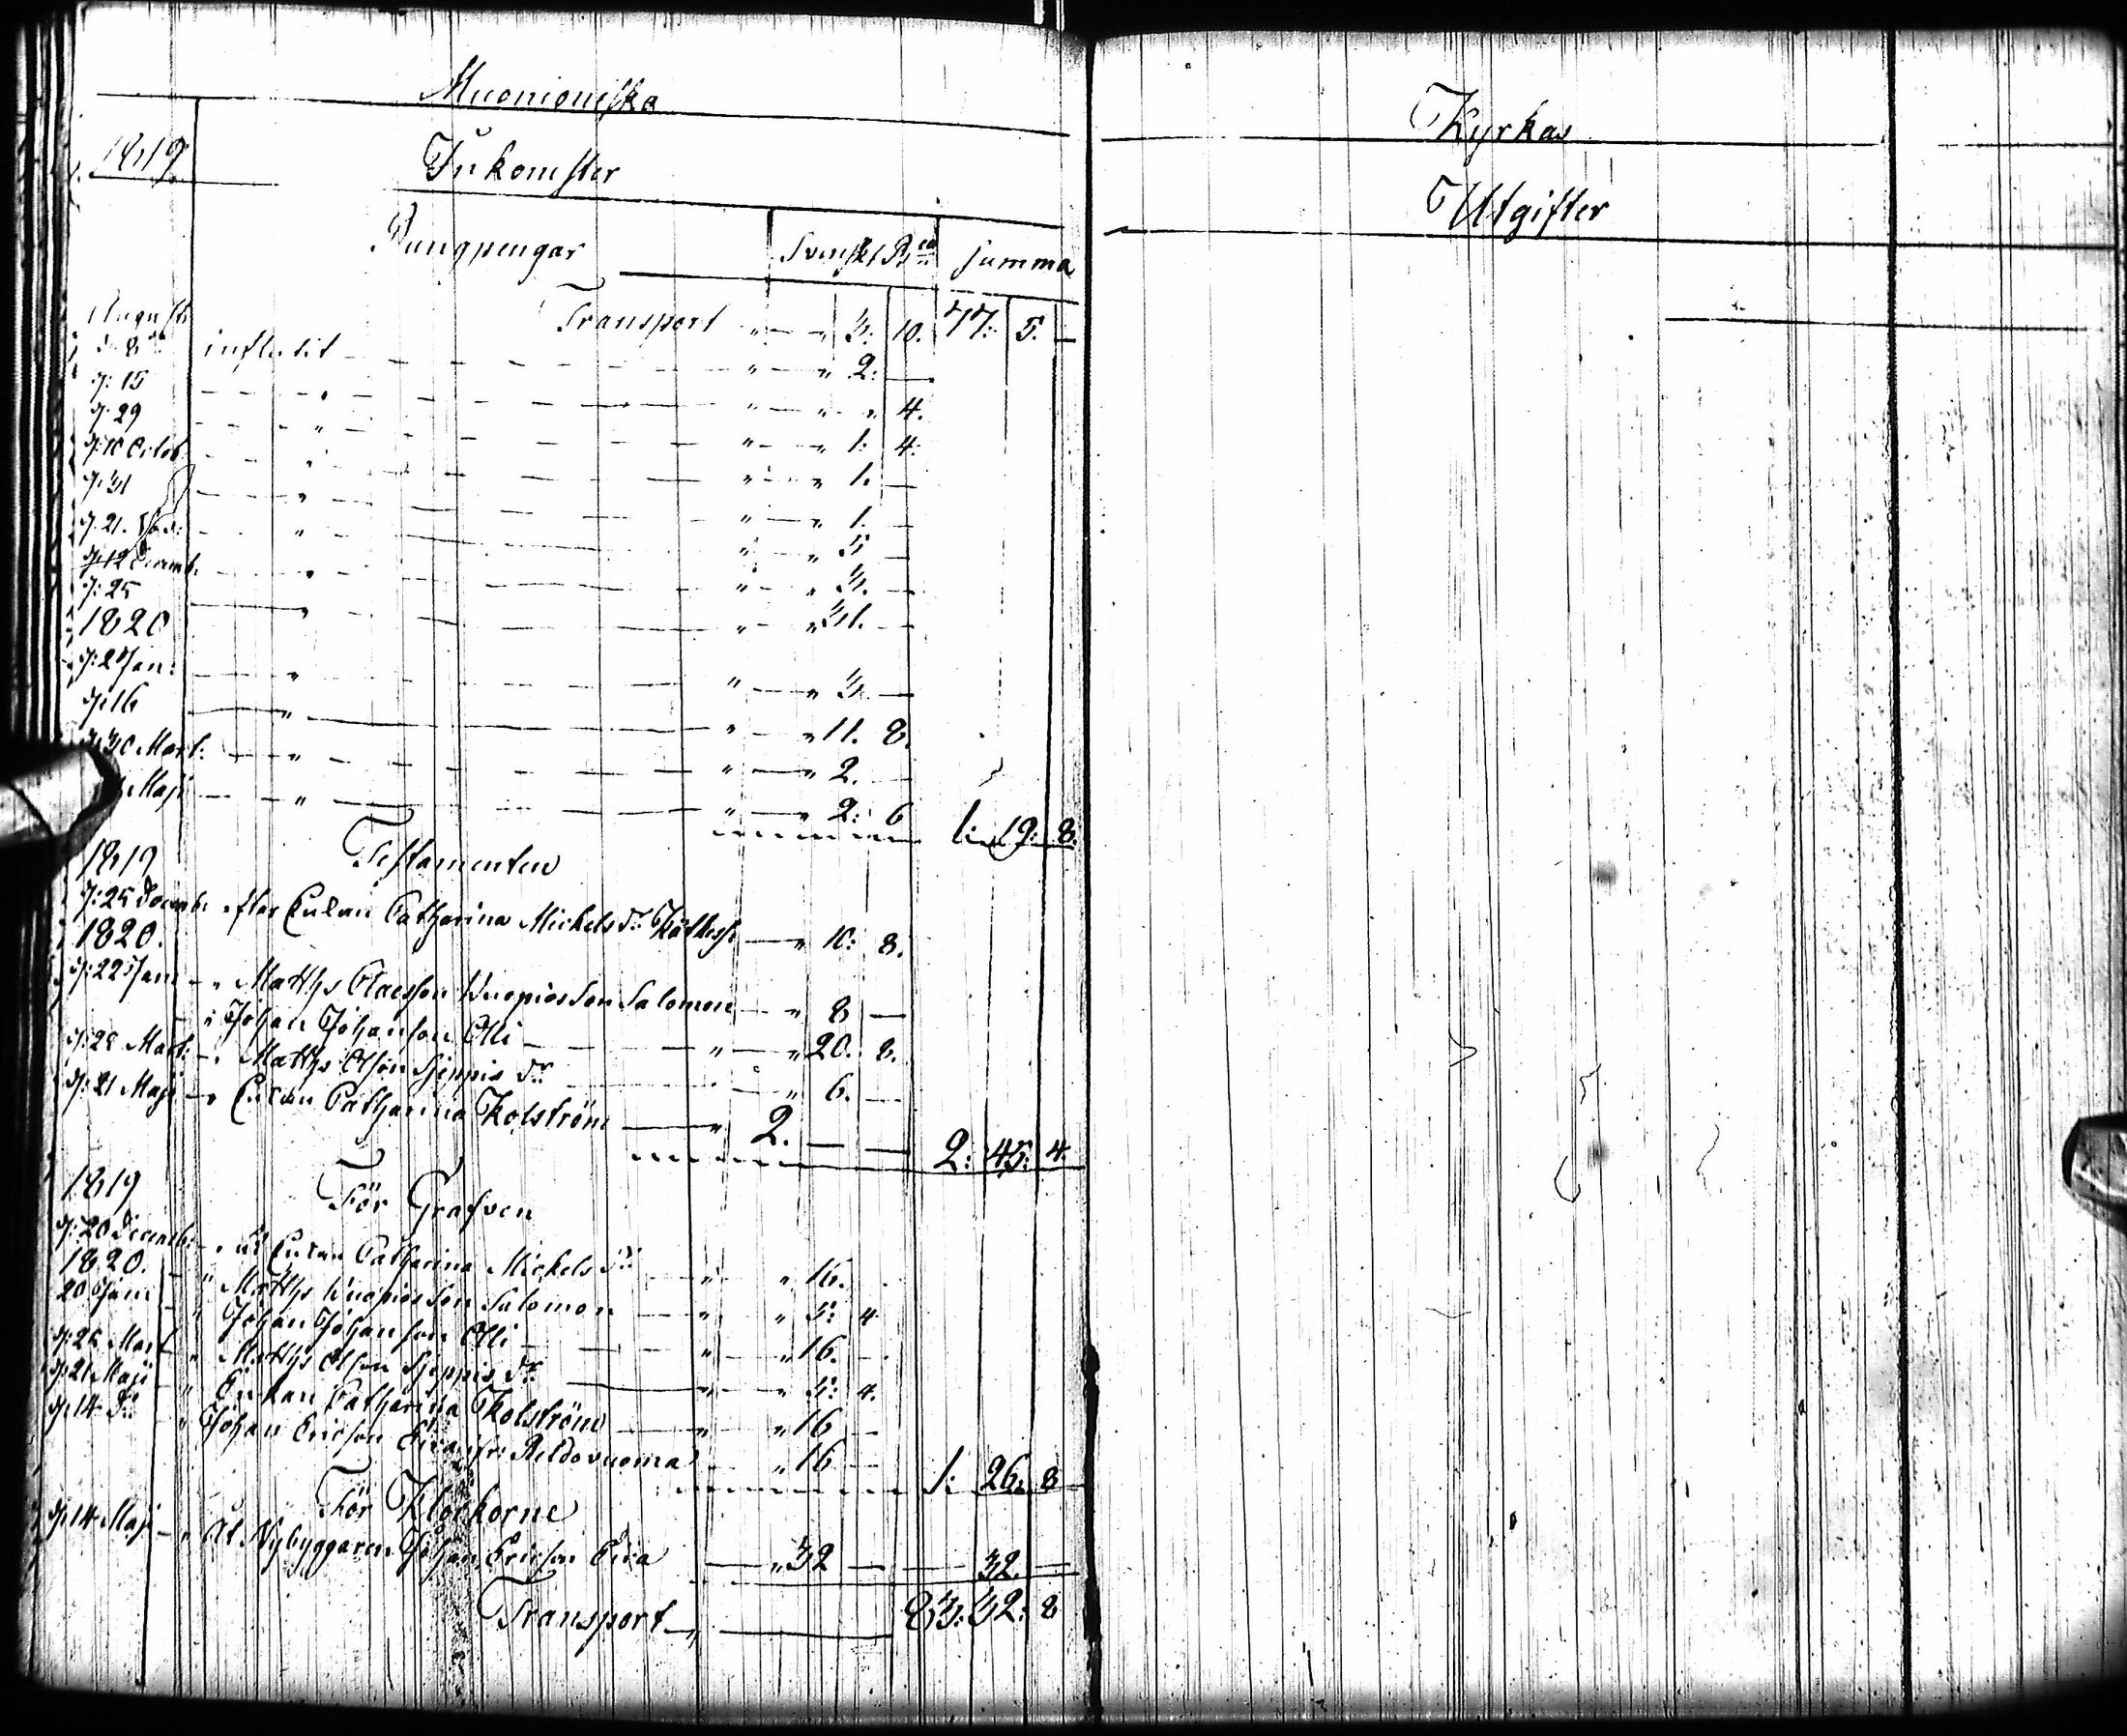 Muonioniska
1819 Inkomster
Pungpengar Svenskt Bco Summa
Transport " " 3. 10. 77: 5. —
Augusti
d. 8de influtit " " 2: —
d: 15 " " " " 4.
d. 29 " " " 1: 4:
d: 10 Octob. " " " 1. —
d. 31 " " " 1. —
d. 21. Nov: " " " 5 —
d. 12 Decemb. " " " 3. —
d: 25 " " " 31. —
1820
d: 2 Jan: " " " 3. —
d. 16 " " " 11. 8.
d. 30 Mart: " " " 2. —
Maji " " " 2: 6 1: 19: 8.
1819 Testamenten
d: 25 Decemb. efter Enkan Catharina Mickelsdr — " 10: 8.
1820.
d: 22 Jan — " Matths Olaesson Kuopios Son Salomon — " 8 —
" Johan Johanson Olli — " — " 20. 8.
d: 28 Mart: — " Matths Olson dr " 6. —
d: 21 Maji — " Enkan Catharina Kolström — " 2. — —
2: 45: 4.
1819 För Grafven
d: 20 Decemb. — " åt Enkan Catharina Mickels dr " " 16.
1820.
20 Jan: " Matths Kuopios Son Salomon — " " 5: 4
" Johan Johanson Olli — " " 16. —
d: 28 Mart " Matths Olson dr — " " 5: 4.
d: 21 Maji " Enkan Catharina Kolström — " " 16 —
d. 14 do " Johan Ericson Peldovuoma " 16 —
1: 26: 8
För Klockorne
d. 14 Maji — " åt Nybyggaren Johan Ericson — " 32 — 32. —
Transport — 83: 32: 8
Kyrkas
Utgifter